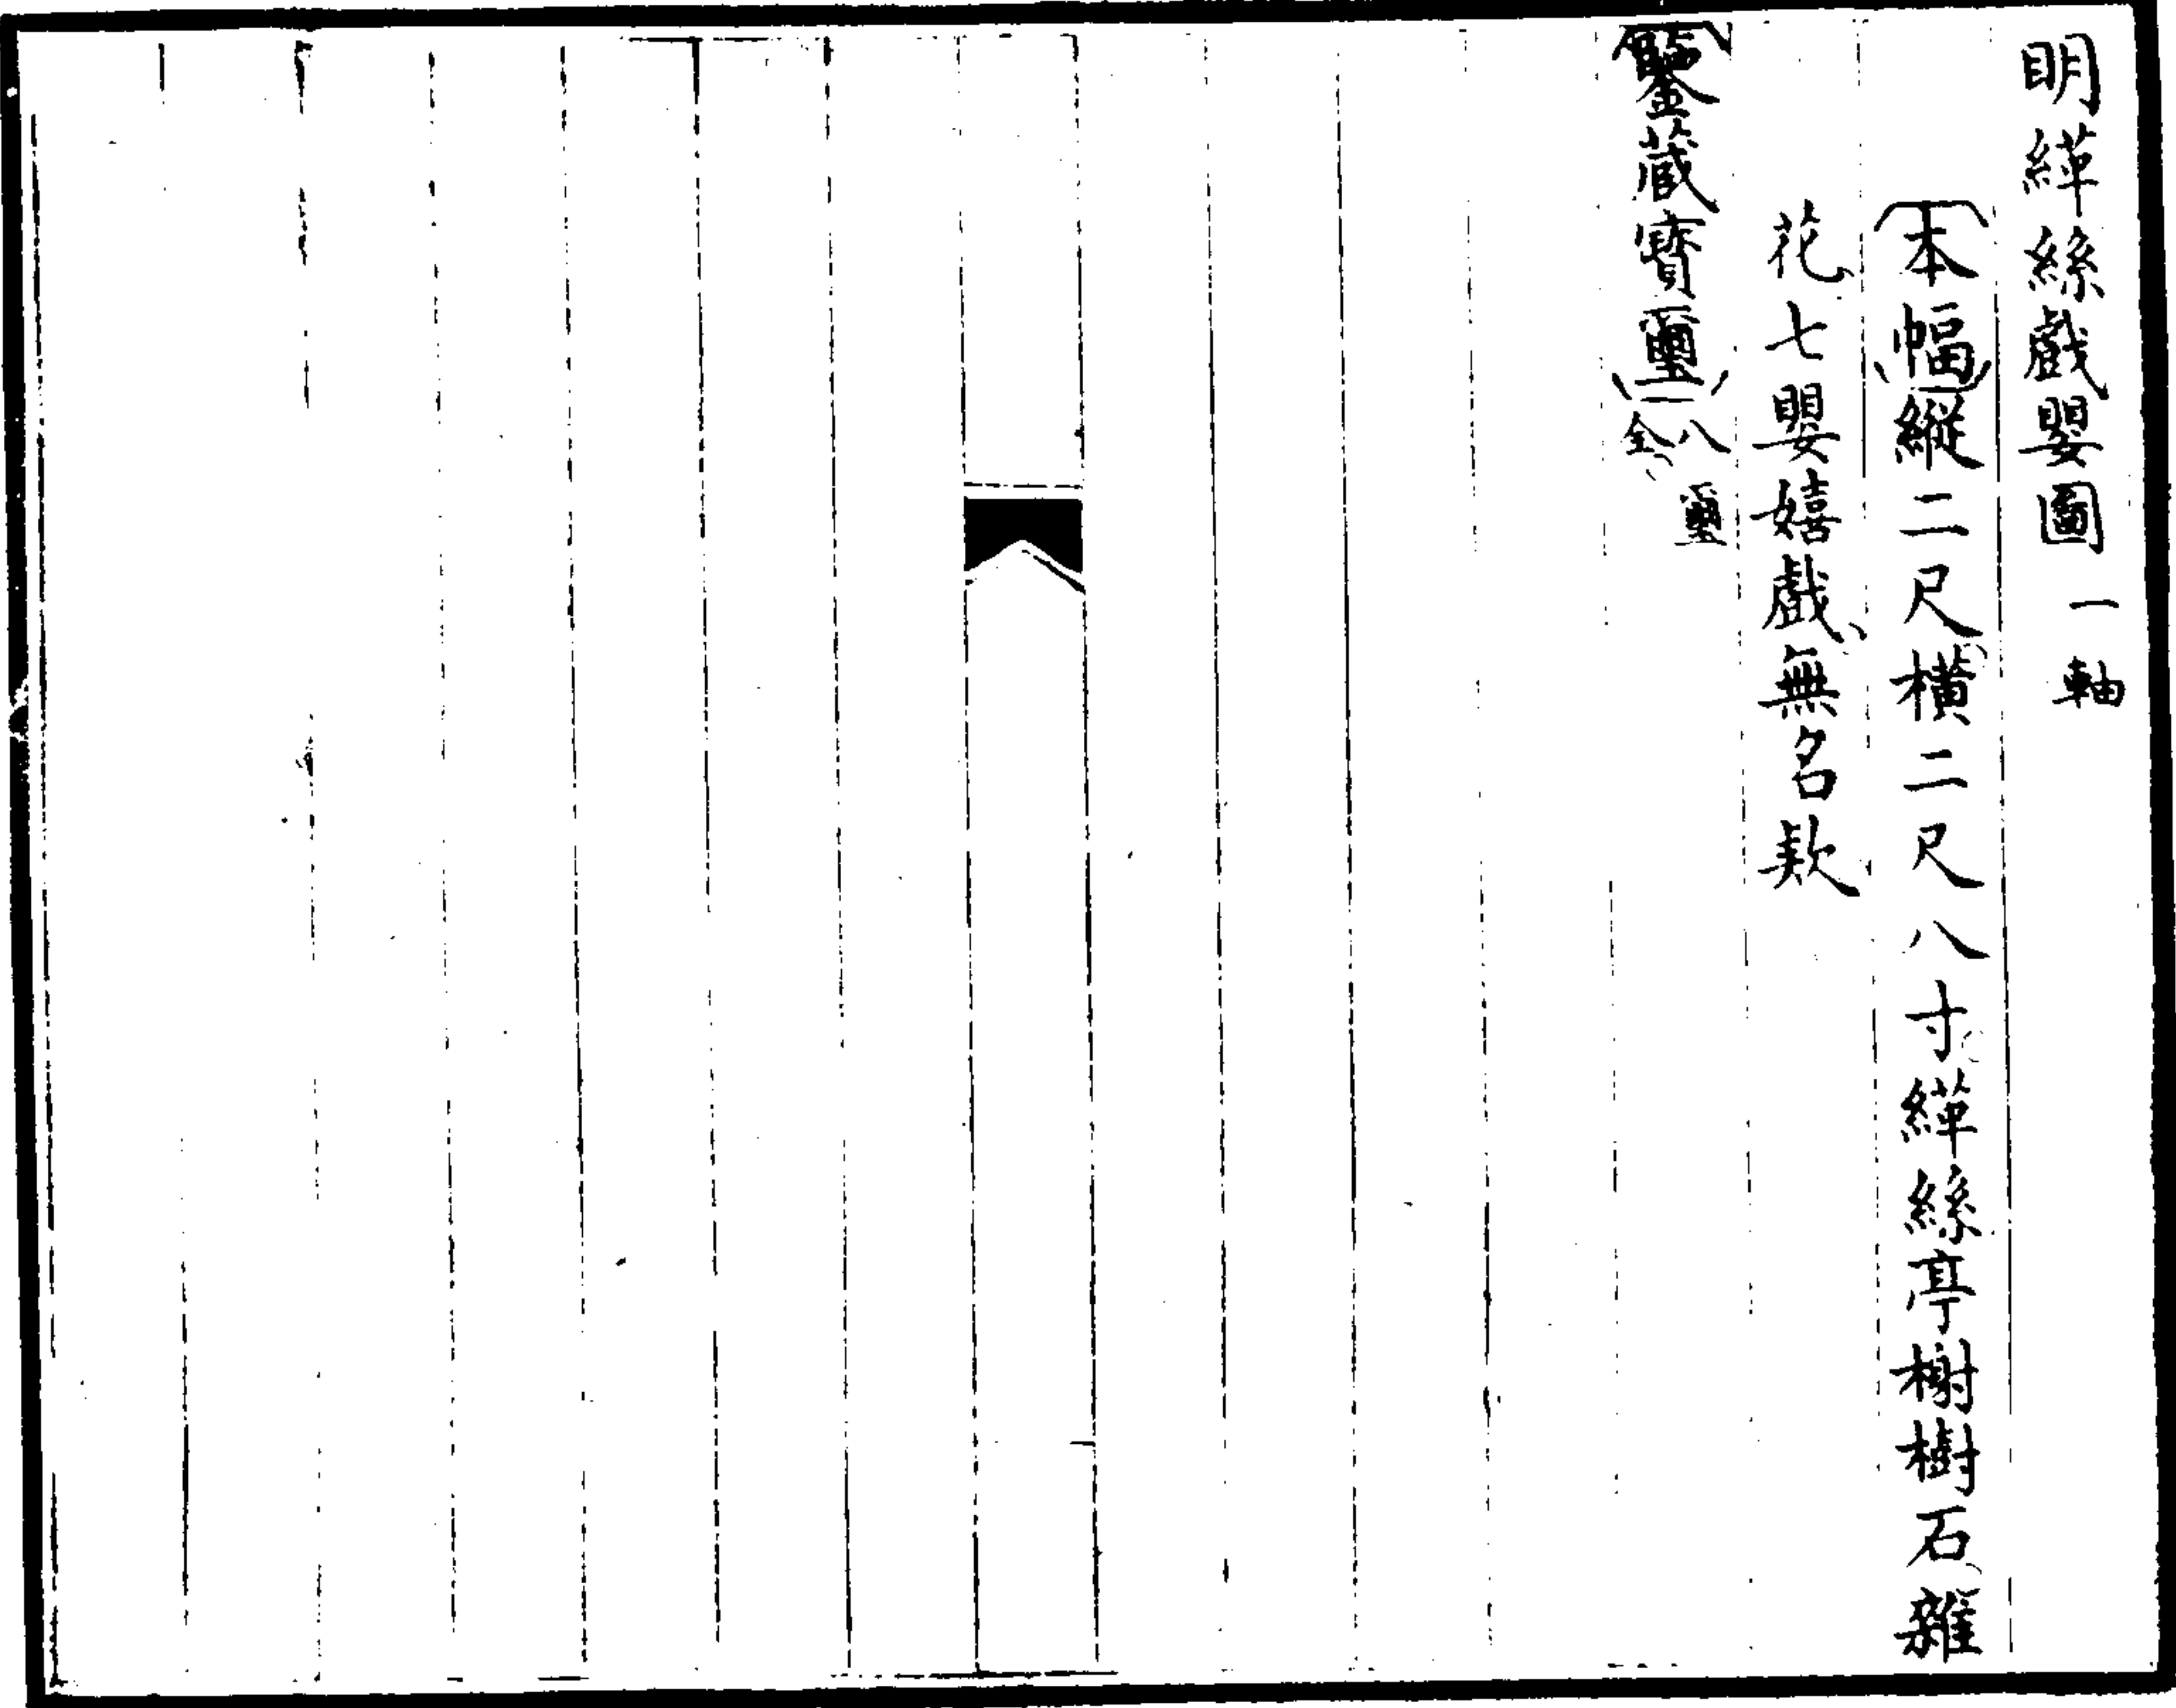 明緙絲戲嬰圖一軸
（本幅）縱二尺橫二尺八寸緙絲亭榭樹石雜
花七嬰嬉戲無名款
（鑒藏寶璽）八璽
全